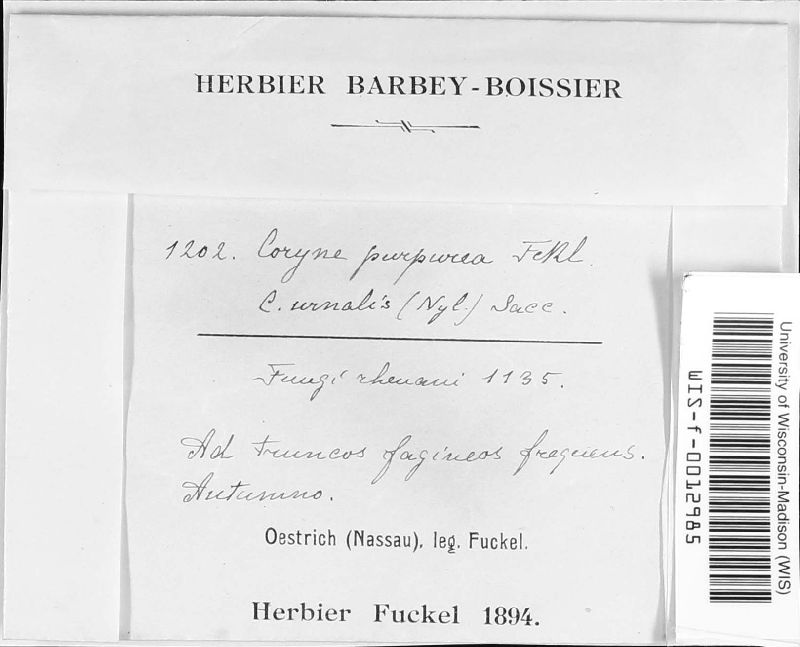 HERBIER BARBEY-BOISSIER
1202. Coryne purpurea Fckl.
C. urnalis (Nyl.) Sacc.
Fungi rhenani 1135.
Ad Truncos fagineos frequens.
Autumno.
Oestrich (Nassau), leg. Fuckel.
Herbier Fuckel 1894.
University of Wisconsin-Madison (WIS)
WIS-f-0012985